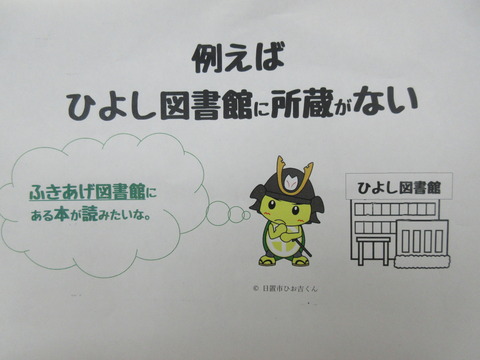 例えば
ひよし図書館に所蔵がない
ふきあげ図書館に
ある本が読みたいな。
ひよし図書館
© 日置市ひお吉くん